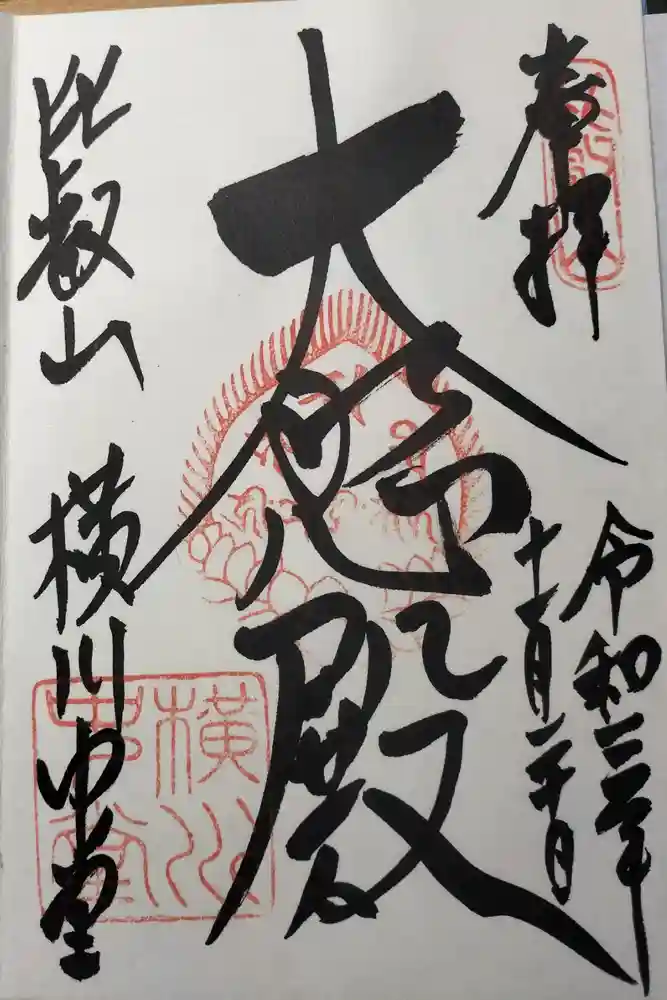 奉拝
令和三年
十一月二十日
大悲殿
比叡山 横川中堂
横川
中堂